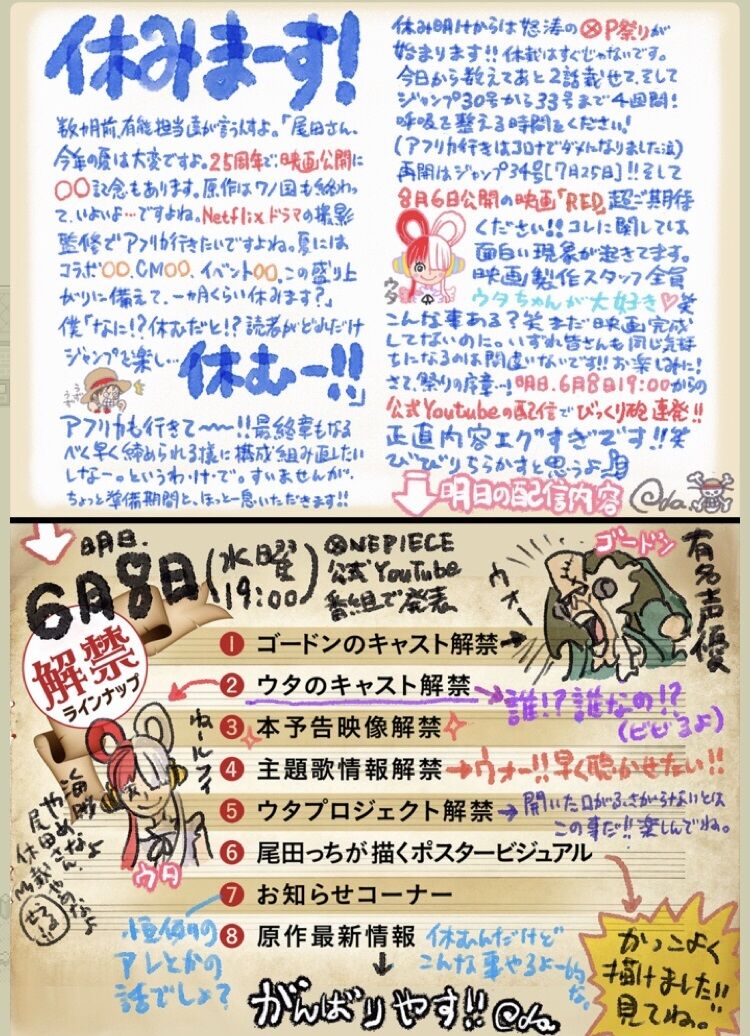 休みまーす!
数ヶ月前、有能担当達が言うんすよ。「尾田さん、
今年の夏は大変ですよ。25周年で、映画公開に
〇〇記念もあります。原作はワノ国も終わっ
て、いよいよ…ですよね。Netflixドラマの撮影
監修でアフリカ行きたいですよね。夏には
コラボ〇〇、CM〇〇、イベント〇〇、この盛り上
がりに備えて、一ヵ月くらい休みます?」
僕「なに!?休むだと!?読者がどれだけ
ジャンプを楽し…
休むー!!」
アフリカも行きて〜〜!!最終章もなる
べく早く締められる様に構成組み直したい
しなー。というわけで。すいませんが、
ちょっと準備期間と、ほっと一息いただきます!!
休み明けからは怒涛のOP祭りが
始まります!!休載はすぐじゃないです。
今日から数えてあと2話載せて、そして
ジャンプ30号から33号まで4週間!
呼吸を整える時間をください!
(アフリカ行きはコロナでダメになりました泣)
再開はジャンプ34号[7月25日]!!そして
8月6日公開の映画「RED」超ご期待
ください!!コレに関しては
面白い現象が起きてます。
映画製作スタッフ全員
ウタ
ウタちゃんが大好き♡笑
こんな事ある?笑 まだ映画完成
してないのに。いずれ皆さんも同じ気持
ちになるのは間違いないです!!お楽しみに!
さて、祭りの序章…!明日、6月8日19:00からの
公式Youtubeの配信でびっくり砲連発!!
正直内容エグすぎです!!笑
びびりちらかすと思うよ
明日の配信内容
Oda.
明日.
6月8日(水曜19:00)
ONE PIECE
公式YouTube
番組で発表
ゴードン
有名声優
ウォー
解禁
ラインナップ
1 ゴードンのキャスト解禁
2 ウタのキャスト解禁
誰!?誰なの!?
(ビビるよ)
3 本予告映像解禁
4 主題歌情報解禁
ウォー!!早く聴かせたい!!
5 ウタプロジェクト解禁
開いた口がふさがらないとは
この事だ!!楽しんでね。
6 尾田っちが描くポスタービジュアル
7 お知らせコーナー
8 原作最新情報
ねールフィ
ウタ
やめなよ
尾田さん
休載
恒例の
アレとかの
話でしょ?
休むんだけど
こんな事やるよー的な。
かっこよく
描けました!!
見てね。
がんばりやす!! Oda.